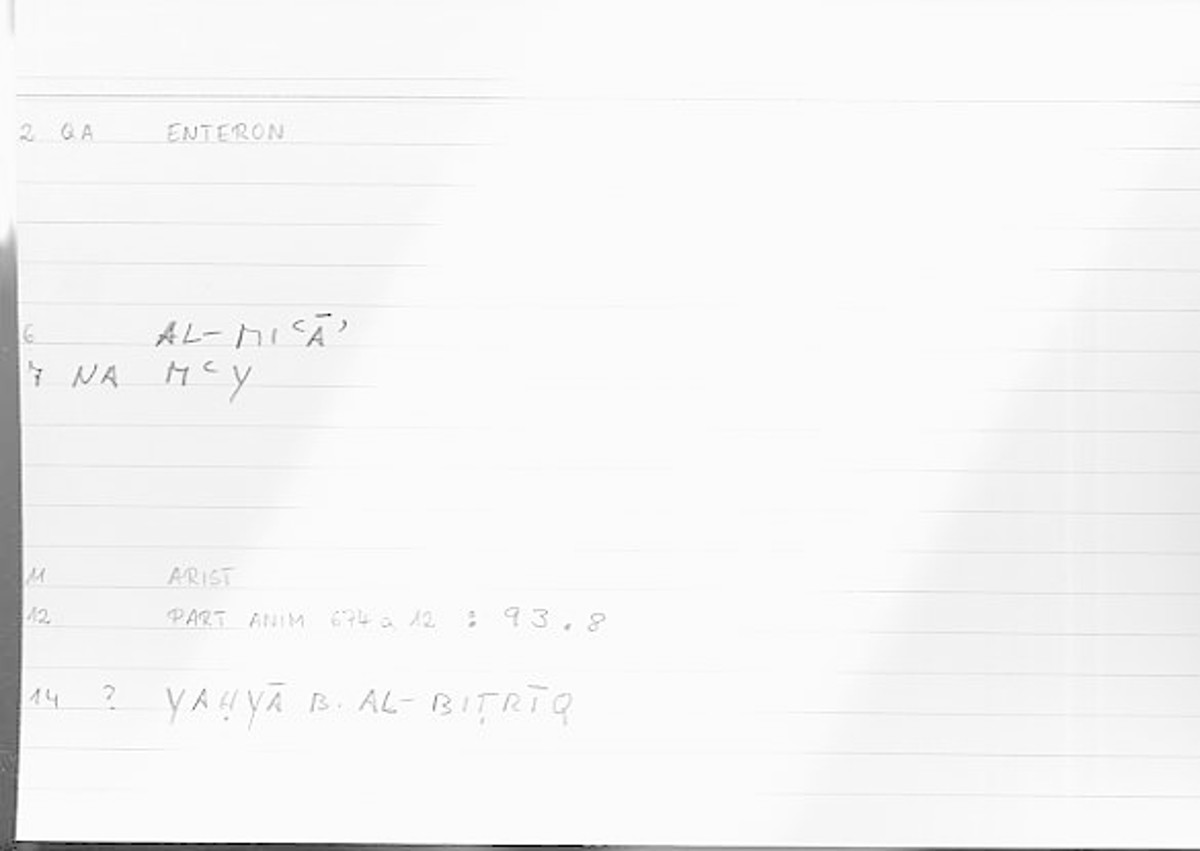 2 QA ENTERON
6 AL-MIʿĀʾ
7 NA MʿY
11 ARIST
12 PART ANIM 674a 12 : 93.8
14 ? YAḤYĀ B. AL-BIṬRĪQ